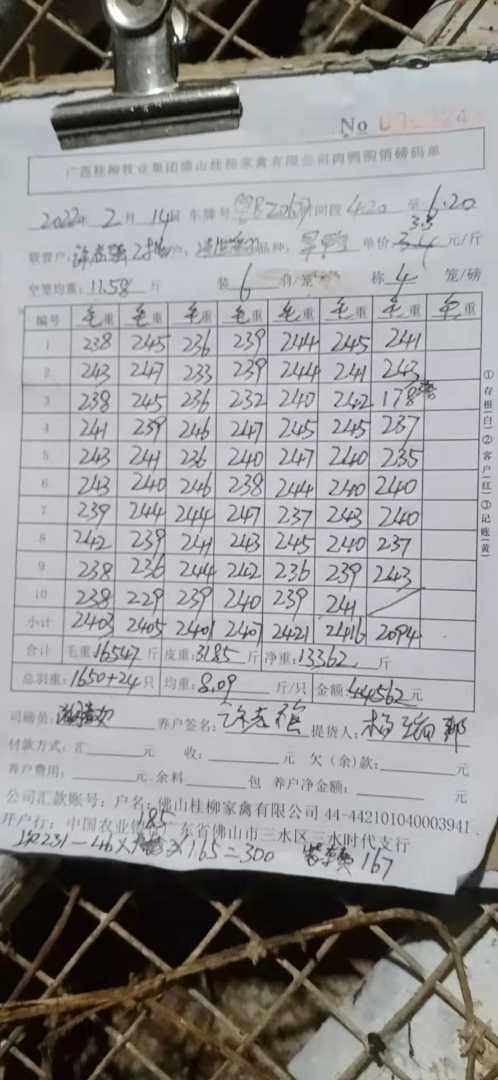 No
广西桂柳牧业集团佛山桂柳家禽有限公司肉鸭购销磅码单
2022年 2月 14日 车牌号 时间段 4:20 至 6:20
3.3
单价 3.4 元/斤
空笼均重: 11.58 斤 装 6 羽/笼 称 4 笼/磅
编号 毛重 毛重 毛重 毛重 毛重 毛重 毛重 毛重
1 238 245 236 239 244 245 241
2 243 247 233 239 244 241 243
3 238 245 236 232 240 242 178
4 241 239 246 247 245 245 237
5 243 241 236 240 247 240 235
6 243 240 246 238 244 240 240
7 239 244 244 247 237 243 240
8 242 239 241 243 245 240 237
9 238 236 244 242 236 239 243
10 238 229 239 240 239 241
小计 2403 2405 2401 2407 2421 2416 2094
合计 毛重: 16547 斤 皮重: 3185 斤 净重: 13362 斤
总羽重: 1650+24 只 均重: 8.09 斤/只 金额: 44562 元
司磅员: 养户签名: 提货人:
付款方式: 汇 元 收: 元 欠(余)款: 元
养户费用: 元 余料 包 养户净金额: 元
公司汇款账号: 户名: 佛山桂柳家禽有限公司 44-442101040003941
开户行: 中国农业银行广东省佛山市三水区三水时代支行
185
231-46× 165=300 167
①存根(白)②客户(红)③记账(黄)